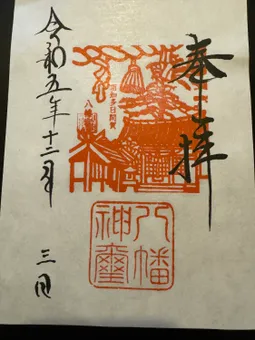 奉拝
八幡
八幡
神璽
令和五年十二月
三日